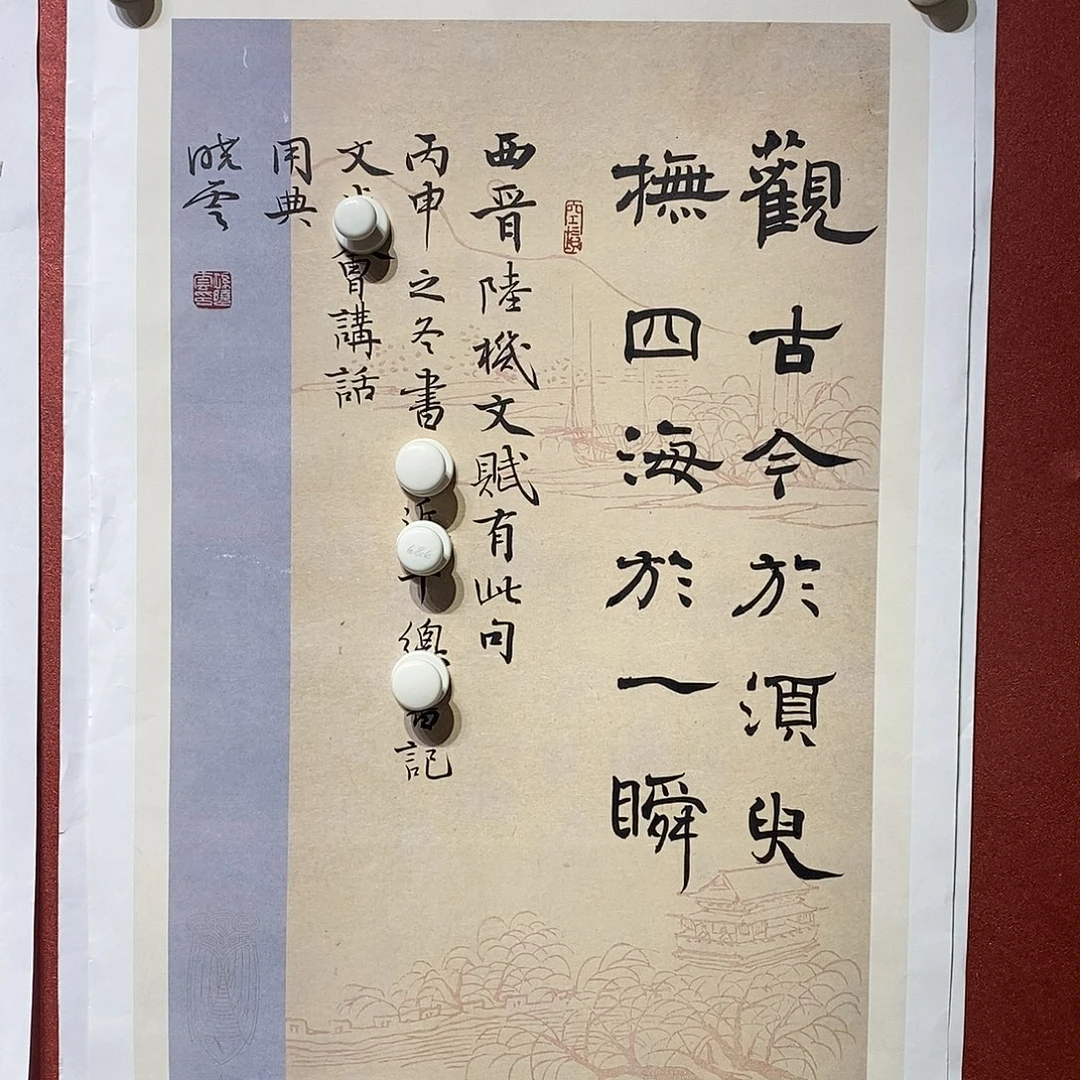 觀古今於須臾
撫四海於一瞬
西晉陸機文賦有此句
丙申之冬書近平總書記
文代會講話
用典
晓雲